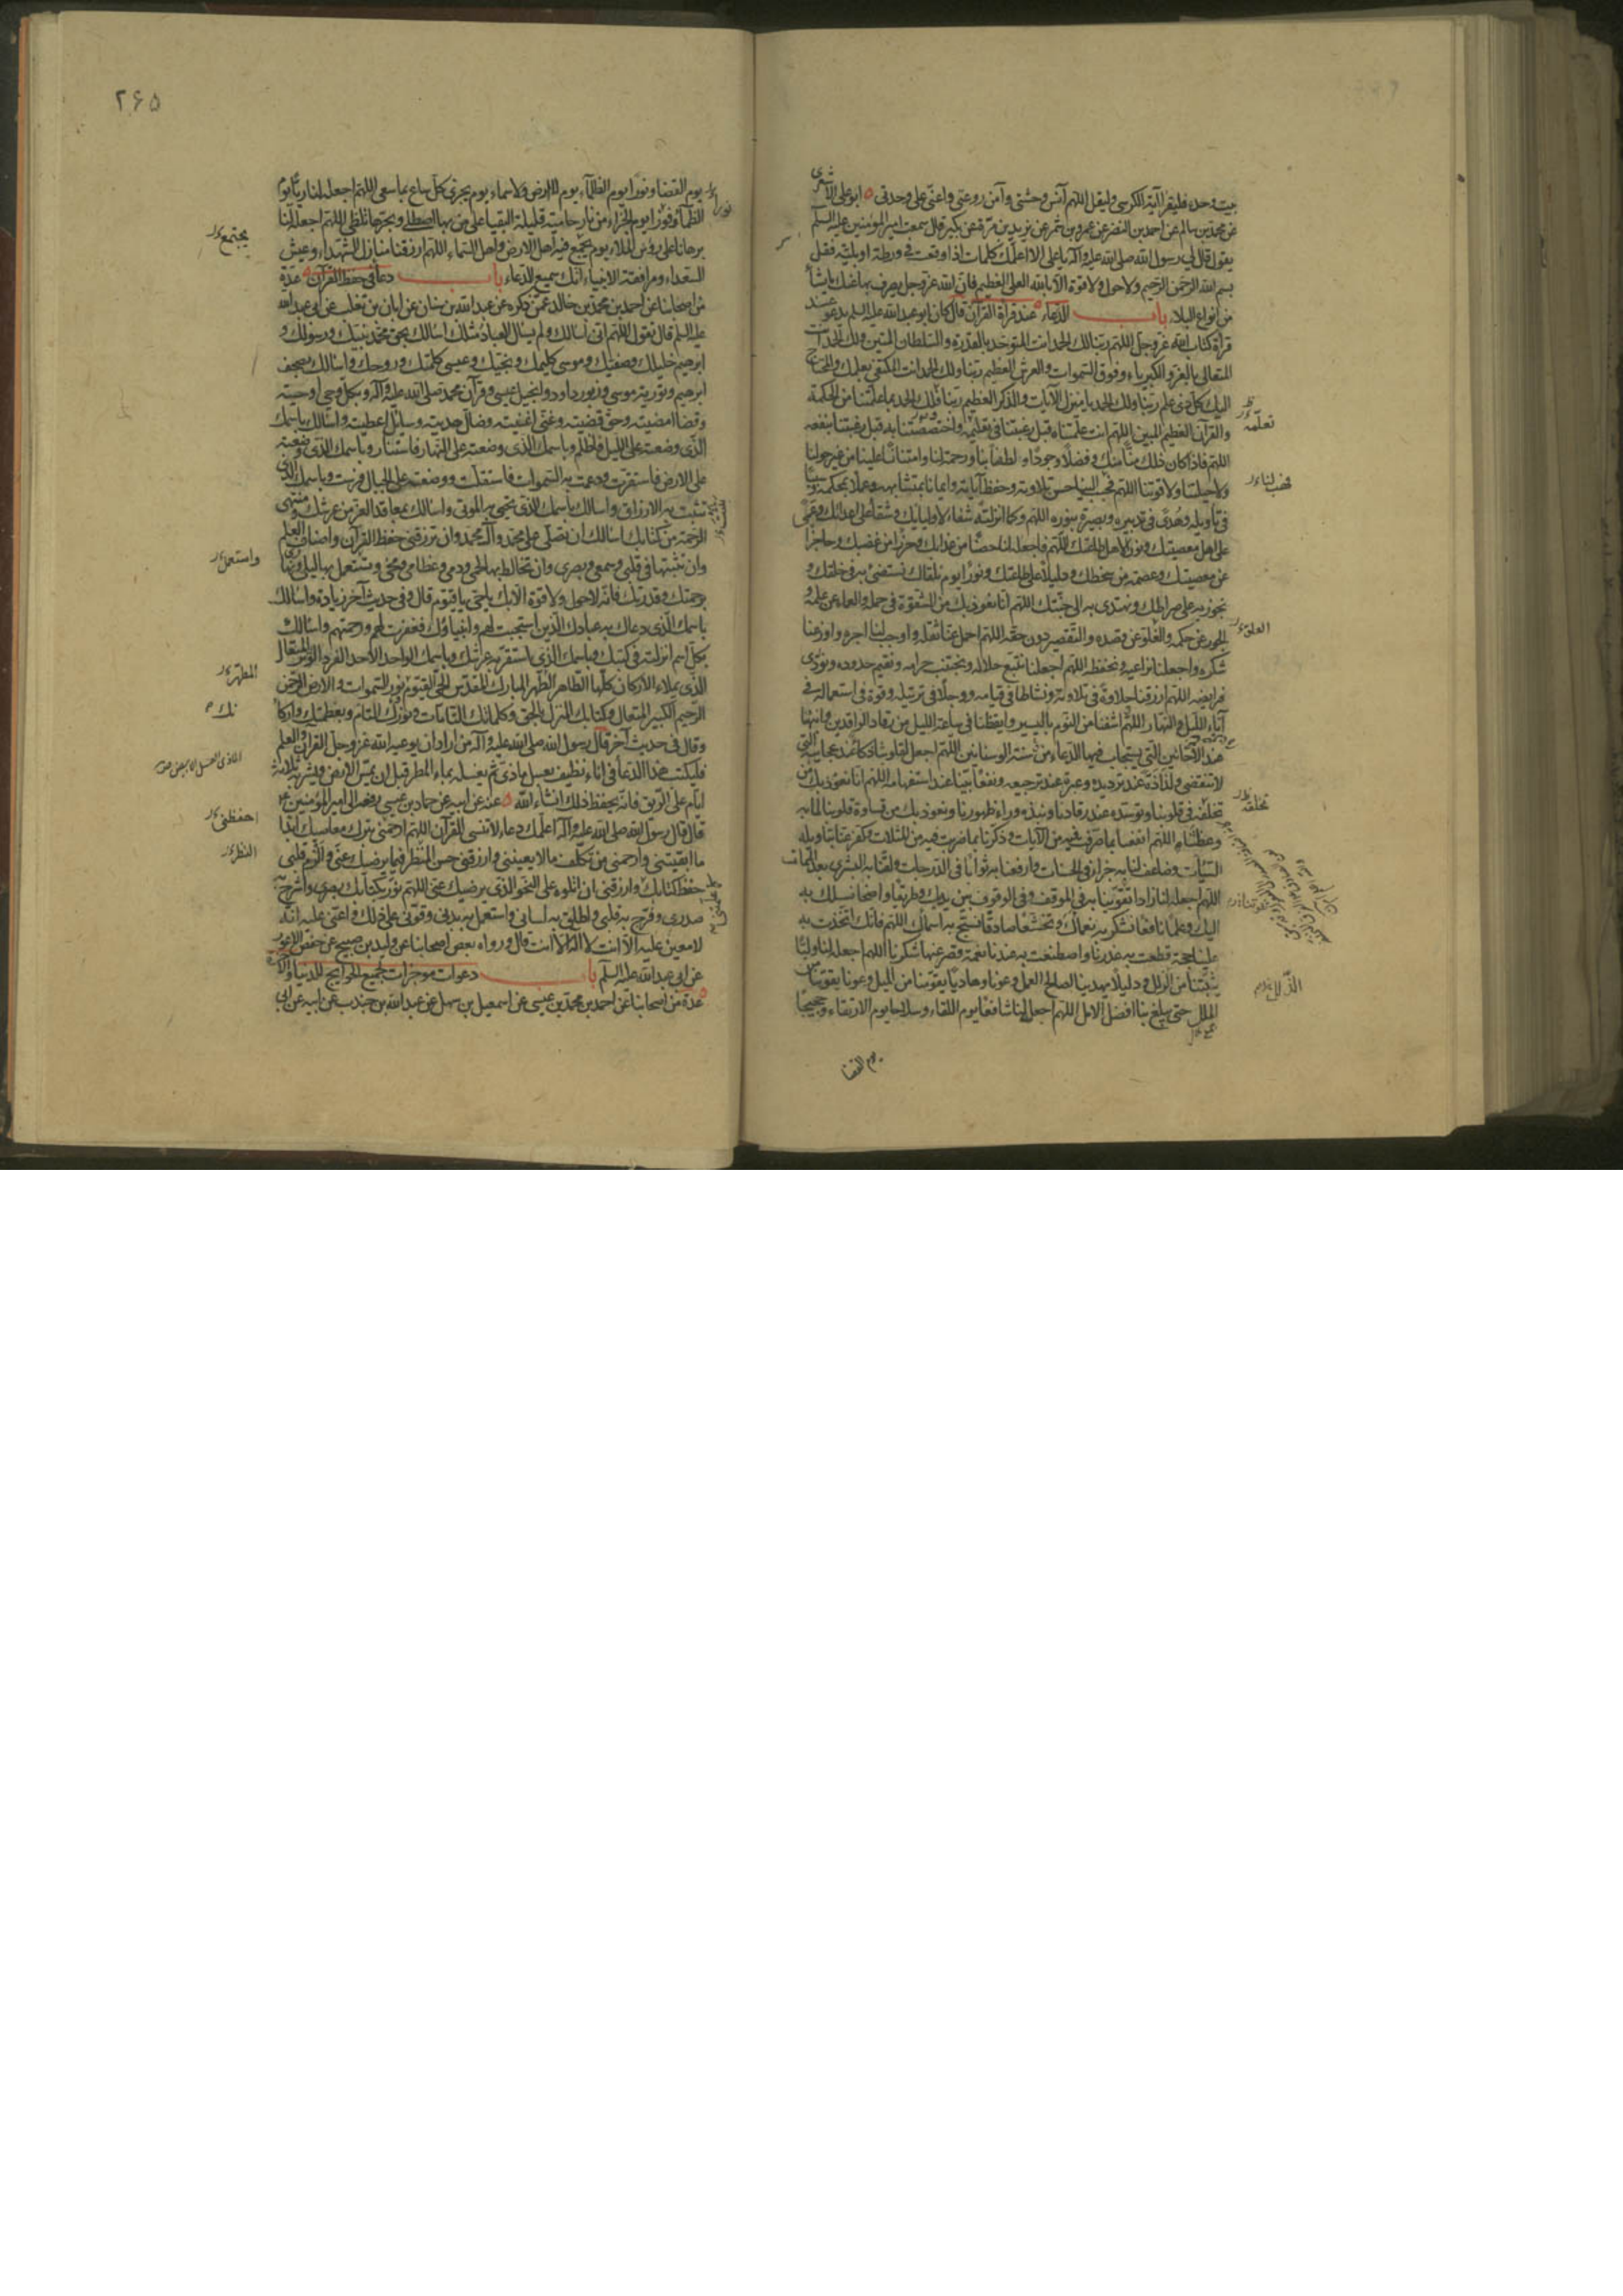 بيت وحده فليقرأ آية الكرسي وليقل اللهم آنس وحشتي وآمن روعتي واعني على وحدتي ابو علي الاشعري
عن محمد بن سالم عن احمد بن النضر عن عمرو بن شمر عن يزيد بن مرة عن بكير قال سمعت امير المؤمنين عليه السلم
يقول قال لي رسول الله صلى الله عليه وآله يا علي الا اعلمك كلمات اذا وقعت في ورطة او بلية فقل
بسم الله الرحمن الرحيم ولا حول ولا قوة الا بالله العلي العظيم فان الله عز وجل يصرف بها عنك ما يشاء
من انواع البلاء باب الدعاء عند قرأة القرآن قال كان ابو عبد الله عليه السلم يدعو عند
قرأة كتاب الله عز وجل اللهم ربنا لك الحمد انت المتوحد بالقدرة والسلطان المتين ولك الحمد انت
المتعالي بالعز والكبرياء وفوق السموات والعرش العظيم ربنا ولك الحمد انت المكتفي بعلمك والمحتاج
اليك كل ذي علم ربنا ولك الحمد يا منزل الآيات والذكر العظيم ربنا فلك الحمد بما علمتنا من الحكمة
والقرآن العظيم المبين اللهم انت علمتناه قبل رغبتنا في تعليمه واختصصتنا به قبل رغبتنا بنفعه
اللهم فاذا كان ذلك منا منك وفضلا وجودا ولطفا بنا ورحمة لنا وامتنانا علينا من غير حولنا
ولا حيلتنا ولا قوتنا اللهم فحبب الينا حسن تلاوته وحفظ آياته وايمانا بمتشابهه وعملا بمحكمه وسببا
في تأويله وهدى في تدبيره وبصيرة بنوره اللهم وكما انزلته شفاء لاوليائك وشقاء على اعدائك وعمى
على اهل معصيتك ونورا لاهل طاعتك اللهم فاجعله لنا حصنا من عذابك وحرزا من غضبك وحاجزا
عن معصيتك وعصمة من سخطك ودليلا على طاعتك ونورا يوم نلقاك نستضيء به في خلقك و
نجوز به على صراطك ونهتدي به الى جنتك اللهم انا نعوذ بك من الشقوة في حمله والعماء عن علمه و
الجور عن حكمه والغلو عن قصده والتقصير دون حقه اللهم احمل عنا ثقله واوجب لنا اجره واوزعنا
شكره واجعلنا نراعيه ونحفظه اللهم اجعلنا نتبع حلاله ونجتنب حرامه ونقيم حدوده ونؤدي
فرايضه اللهم ارزقنا حلاوة في تلاوته ونشاطا في قيامه ووجلا في ترتيله وقوة في استعماله في
آناء الليل والنهار اللهم اشفنا من النوم باليسير وايقظنا في ساعة الليل من رقاد الراقدين وانبهنا
عند الاحايين التي يستجاب فيها الدعاء من سنة الوسنانين اللهم اجعل لقلوبنا ذكاء عند عجايبه التي
لا تنقضي ولذاذة عند ترديده وعبرة عند ترجيعه ونفعا بينا عند استفهامه اللهم انا نعوذ بك من
تخلفه في قلوبنا وتوسده عند رقادنا ونبذه وراء ظهورنا ونعوذ بك من قساوة قلوبنا لما به
وعظتنا اللهم انفعنا بما صرفت فيه من الآيات وذكرنا بما ضربت فيه من المثلات وكفر عنا بتأويله
السيئات وضاعف لنا به جزاء في الحسنات وارفعنا به ثوابا في الدرجات ولقنا به البشرى بعد الممات
اللهم اجعله لنا زادا تقوينا به في الموقف وفي الوقوف بين يديك وطريقا واضحا نسلك به
اليك وعلما نافعا نشكر به نعماك وتخشعا صادقا نسبح به اسماك اللهم فانك اتخذت به
علينا حجة قطعت به عذرنا واصطنعت به عندنا نعمة قصر عنها شكرنا اللهم اجعله لنا وليا
يثبتنا من الزلل ودليلا يهدينا لصالح العمل وعونا وهاديا يقومنا من الميل وعونا يقوينا من
الملل حتى يبلغ بنا افضل الامل اللهم اجعله لنا شافعا يوم اللقاء وسلاحا يوم الارتقاء وحجيجا
يوم القضا
تعلمه
فحبب لنا
الغلو
تخلفه
الذلل
٢۶۵
يوم القضا ونورا يوم الظلماء يوم لا ارض ولا سماء يوم يجزى كل ساع بما سعى اللهم اجعله لنا ريا يوم
الظمأ وفوزا يوم الجزاء من نار حامية قليلة البقيا على من بها اصطلى وبحرها تلظى اللهم اجعله لنا
برهانا على رؤس الملاء يوم يجمع فيه اهل الارض واهل السماء اللهم ارزقنا منازل الشهداء وعيش
السعداء ومرافقة الانبياء انك سميع الدعاء باب دعاء في حفظ القرآن عدة
من اصحابنا عن احمد بن محمد بن خالد عمن ذكره عن عبد الله بن سنان عن ابان بن تغلب عن ابي عبد الله
عليه السلم قال تقول اللهم اني اسالك ولم يسال العباد مثلك اسالك بحق محمد نبيك ورسولك و
ابرهيم خليلك وصفيك وموسى كليمك ونجيك وعيسى كلمتك وروحك واسالك بصحف
ابرهيم وتورية موسى وزبور داود وانجيل عيسى وقرآن محمد صلى الله عليه وآله وبكل وحي اوحيته
وقضاء امضيته وحق قضيته وغني اغنيته وضال هديته وسائل اعطيته واسالك باسمك
الذي وضعته على الليل فاظلم وباسمك الذي وضعته على النهار فاستنار وباسمك الذي وضعته
على الارض فاستقرت ودعمت به السموات فاستقلت ووضعته على الجبال فرست وباسمك الذي
تثبت به الارزاق واسالك باسمك الذي تحيي به الموتى واسالك بمعاقد العز من عرشك ومنتهى
الرحمة من كتابك اسالك ان تصلي على محمد وآل محمد وان ترزقني حفظ القرآن واصناف العلم
وان تثبتها في قلبي وسمعي وبصري وان تخالط بها لحمي ودمي وعظامي ومخي وتستعمل بها ليلي ونهاري
برحمتك وقدرتك فانه لا حول ولا قوة الا بك يا حي يا قيوم قال وفي حديث آخر زيادة واسالك
باسمك الذي دعاك به عبادك الذين استجبت لهم وانبياؤك فغفرت لهم ورحمتهم واسالك
بكل اسم انزلته في كتبك وباسمك الذي استقر به عرشك وباسمك الواحد الاحد الفرد الوتر المتعال
الذي يملاء الاركان كلها الطاهر الطهر المبارك المقدس الحي القيوم نور السموات والارض الرحمن
الرحيم الكبير المتعال وكتابك المنزل بالحق وكلماتك التامات ونورك التام وبعظمتك واركانك
وقال في حديث آخر قال رسول الله صلى الله عليه وآله من اراد ان يوعيه الله عز وجل القرآن والعلم
فليكتب هذا الدعاء في اناء نظيف بعسل ماذي ثم يغسله بماء المطر قبل ان يمس الارض ويشربه ثلاثة
ايام على الريق فانه يحفظ ذلك انشاء الله عنه عن ابيه عن حماد بن عيسى رفعه الى امير المؤمنين ع
قال قال رسول الله صلى الله عليه وآله اعلمك دعاء لا تنسى القرآن اللهم ارحمني بترك معاصيك ابدا
ما ابقيتني وارحمني من تكلف ما لا يعنيني وارزقني حسن المنظر فيما يرضيك عني والزم قلبي
حفظ كتابك وارزقني ان اتلوه على النحو الذي يرضيك عني اللهم نور بكتابك بصري واشرح به
صدري وفرح به قلبي واطلق به لساني واستعمل به بدني وقوني على ذلك واعني عليه انه
لا معين عليه الا انت لا اله الا انت قال ورواه بعض اصحابنا عن وليد بن صبيح عن حفص الاعور
عن ابي عبد الله عليه السلم باب دعوات موجزات لجميع الحوايج للدنيا والآخرة
عدة من اصحابنا عن احمد بن محمد بن عيسى عن اسمعيل بن سهل عن عبد الله بن جندب عن ابيه عن ابي
يجتمع
واستعمل
المطهر
احفظني
النظر